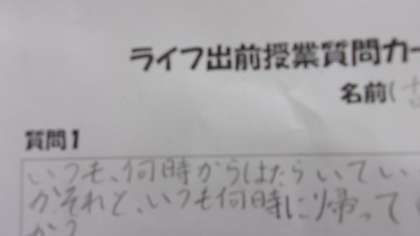 ライフ出前授業質問カー
名前(
質問1
いつも、何時からはたらいてい
かそれと、いつも何時に帰って
か?